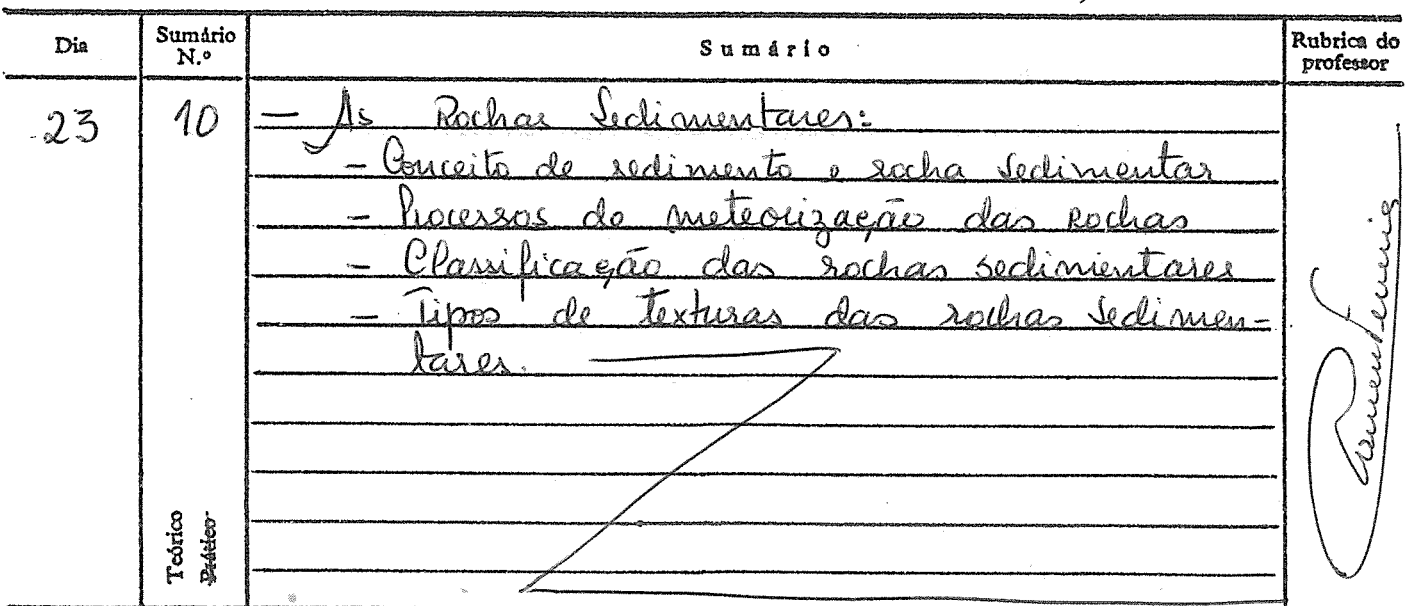 Dia Sumário N.º Sumário Rubrica do professor
23 10 - As Rochas Sedimentares:
- Conceito de sedimento e rocha sedimentar
- Processos de meteorização das Rochas
- Classificação das rochas sedimentares
- Tipos de texturas das rochas sedimen-
tares.
Teórico
Prático